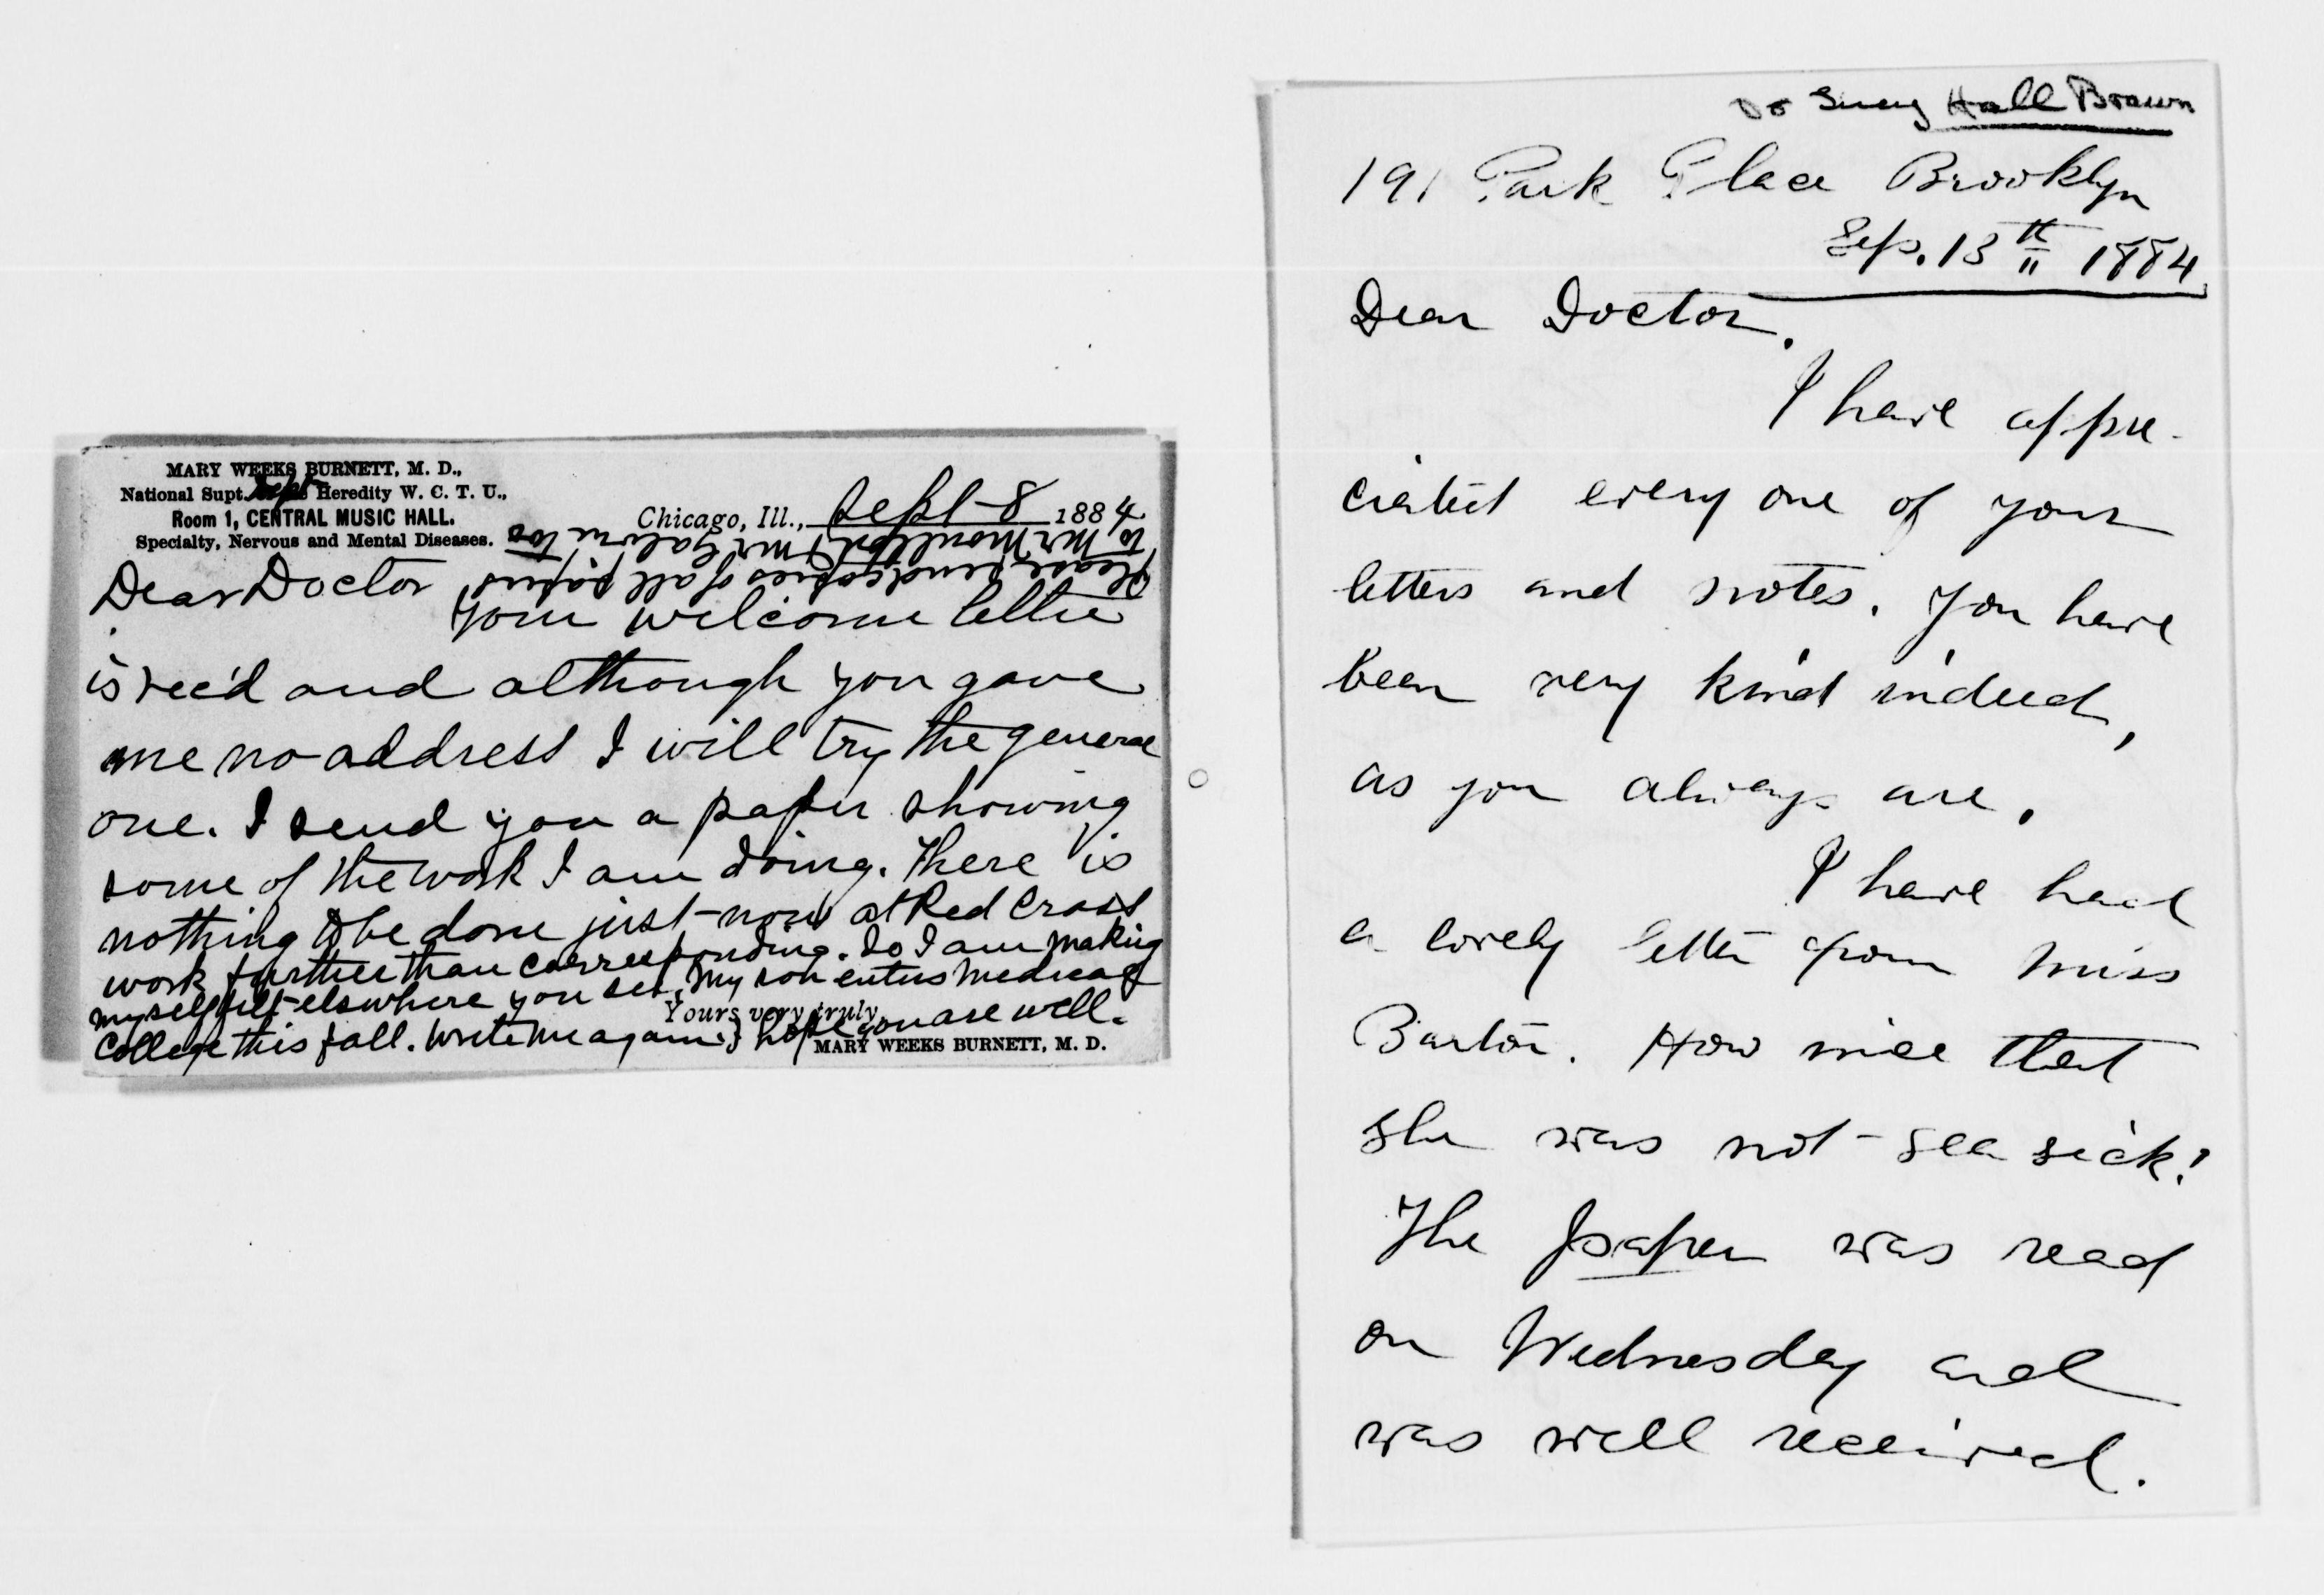 MARY WEEKS BURNETT, M. D.,
National Supt. Dept Heredity W. C. T. U.,
Room 1, CENTRAL MUSIC HALL.
Specialty, Nervous and Mental Diseases.
Chicago, Ill., Sept 8 1884
Please send copies of all papers
to Mr Moulton & Mr
Dear Doctor
Your welcome letter
is rec'd and although you gave
me no address I will try the general
one. I send you a paper showing
some of the work I am doing. There is
nothing to be done just now at Red Cross
work further than corresponding. So I am making
myself felt elswhere you see. My son enters Medical
College this fall. Write me again. I hope you are well.
Yours very truly,
MARY WEEKS BURNETT, M. D.
Dr Lucy Hall Brown
191 Park Place Brooklyn
Sep. 13th 1884
Dear Doctor.
I have appre-
ciated every one of your
letters and notes. You have
been very kind indeed,
as you always are.
I have had
a lovely letter from Miss
Barton. How nice that
she was not sea sick!
The paper was read
on Wednesday and
was well received.